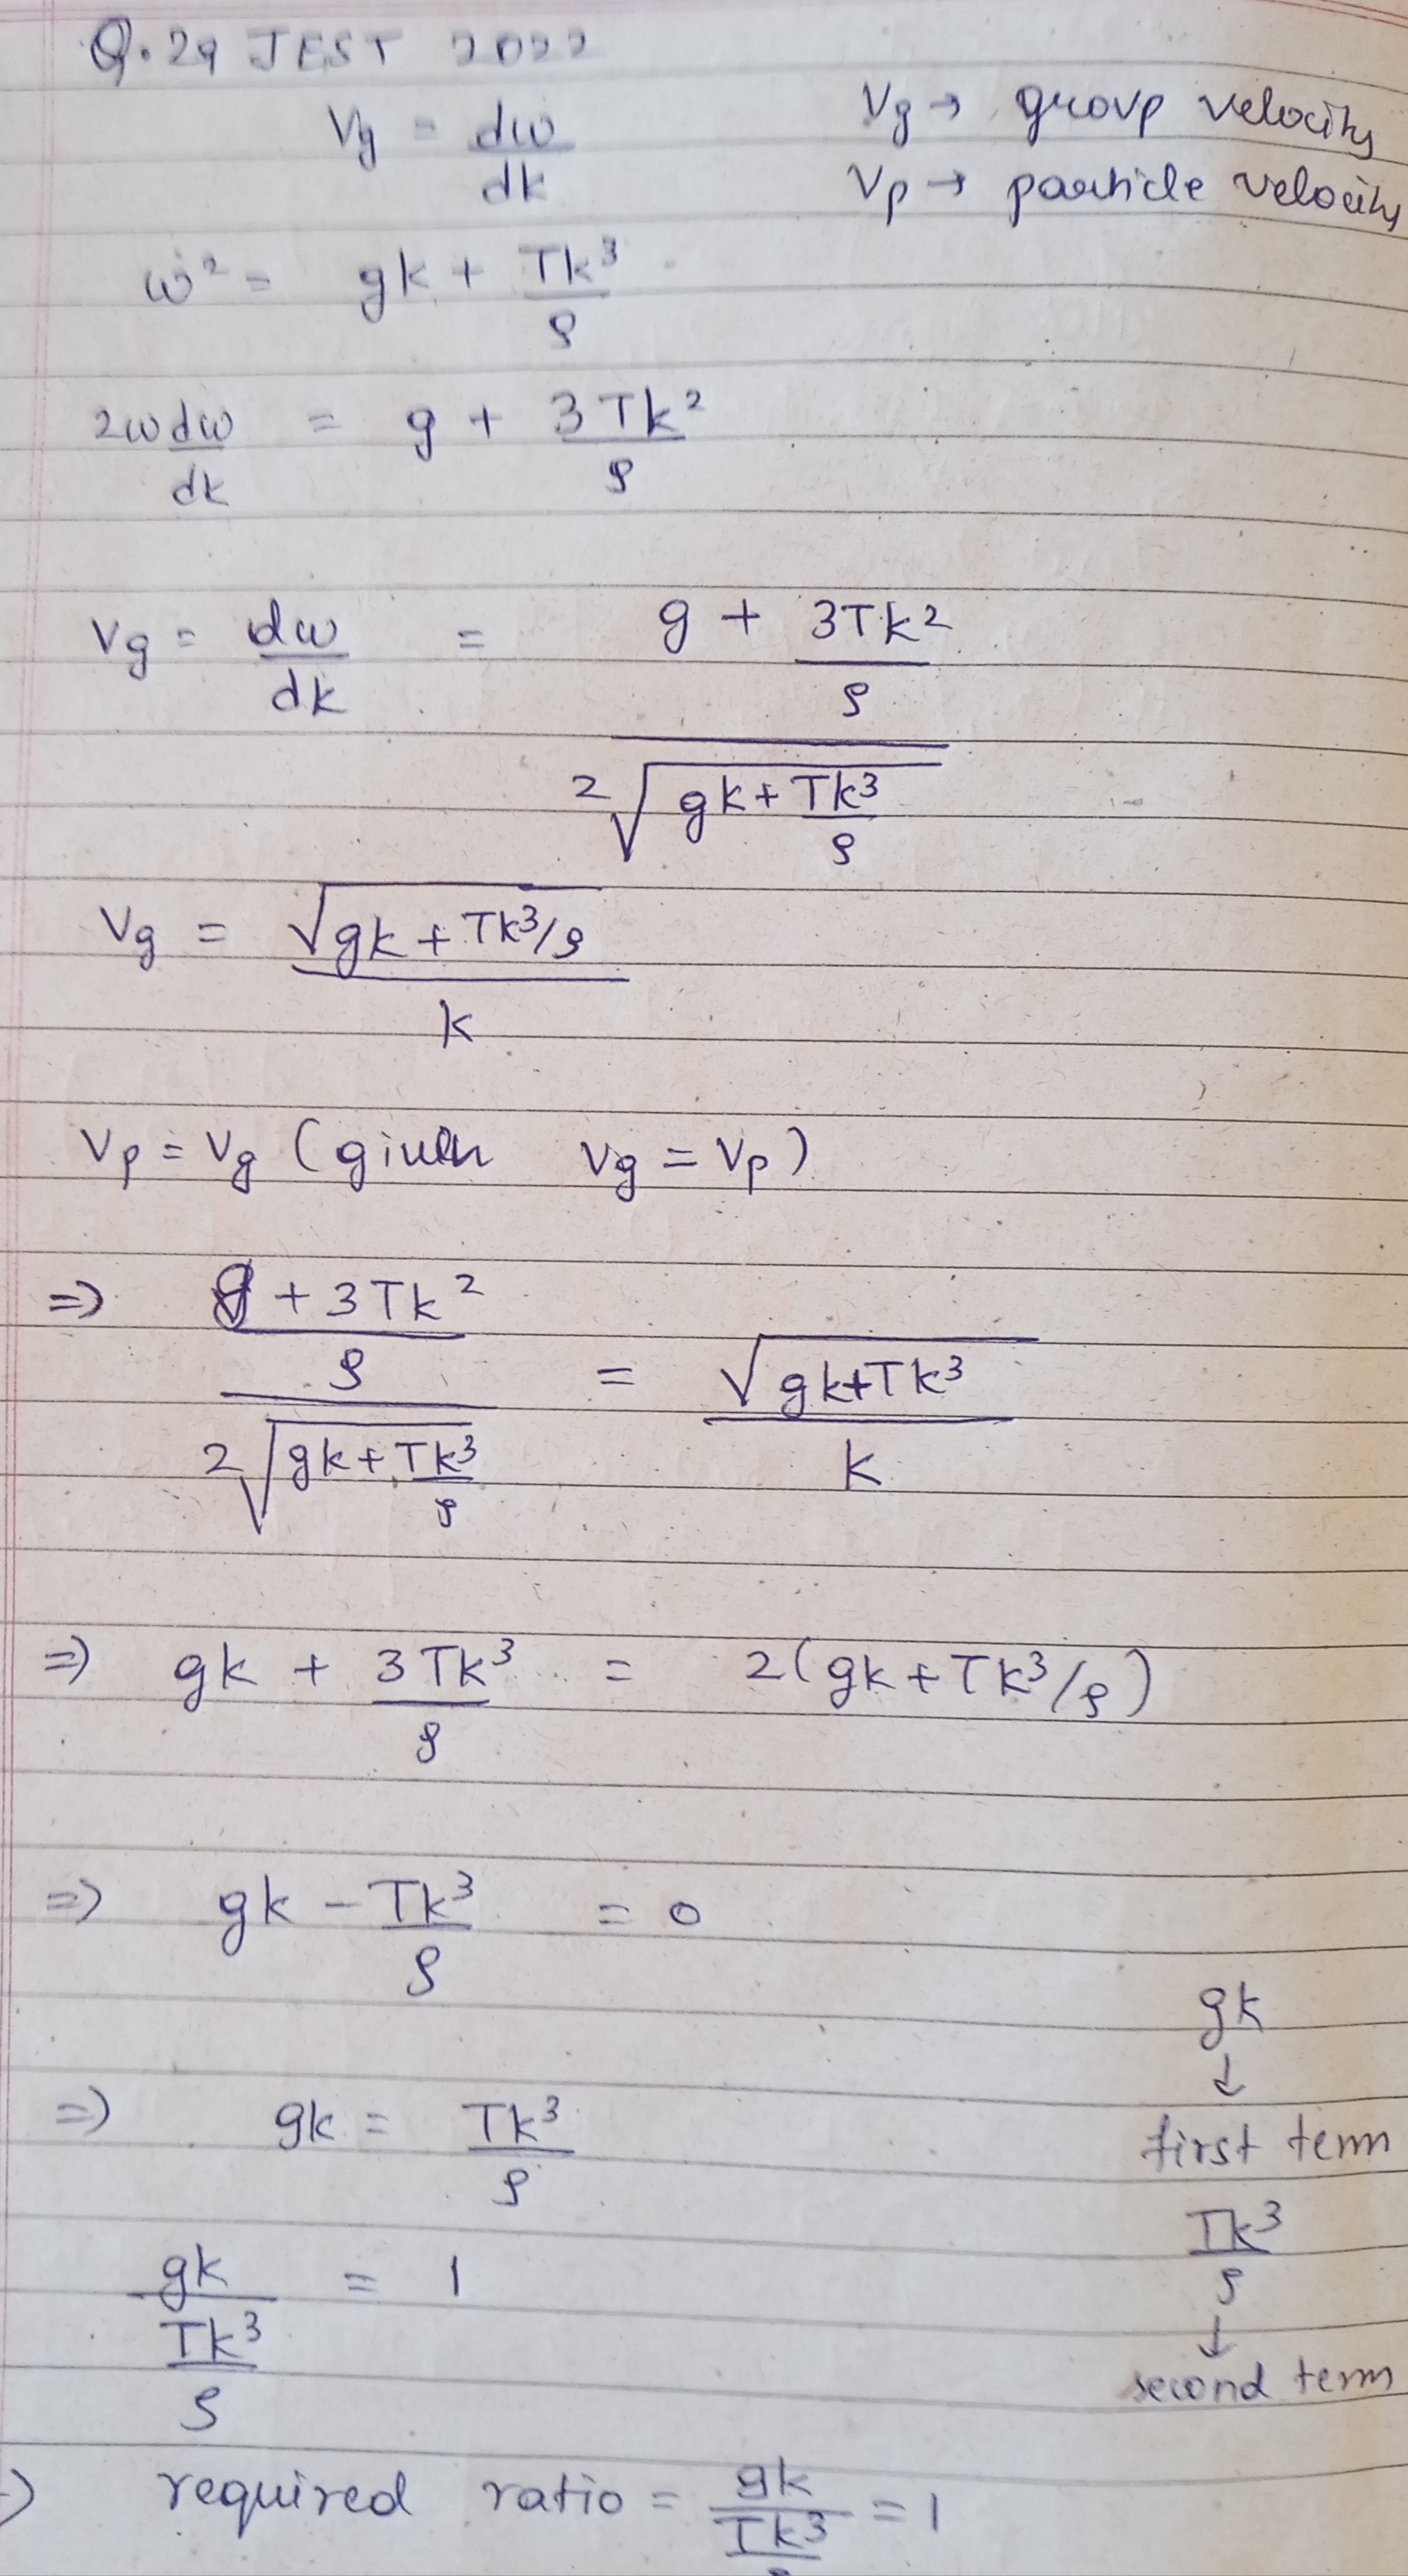 Q.29 JEST 2022
Vg = dω/dk
Vg → group velocity
Vp → particle velocity
ω² = gk + Tk³/ρ
2ω dω/dk = g + 3Tk²/ρ
Vg = dω/dk = (g + 3Tk²/ρ) / (2√(gk + Tk³/ρ))
Vg = √(gk + Tk³/ρ) / k
Vp = Vg (given Vg = Vp)
⇒ (g + 3Tk²/ρ) / (2√(gk + Tk³/ρ)) = √(gk + Tk³) / k
⇒ gk + 3Tk³/ρ = 2(gk + Tk³/ρ)
⇒ gk - Tk³/ρ = 0
⇒ gk = Tk³/ρ
gk
↓
first term
Tk³/ρ
↓
second term
gk / (Tk³/ρ) = 1
⇒ required ratio = gk / (Tk³/ρ) = 1